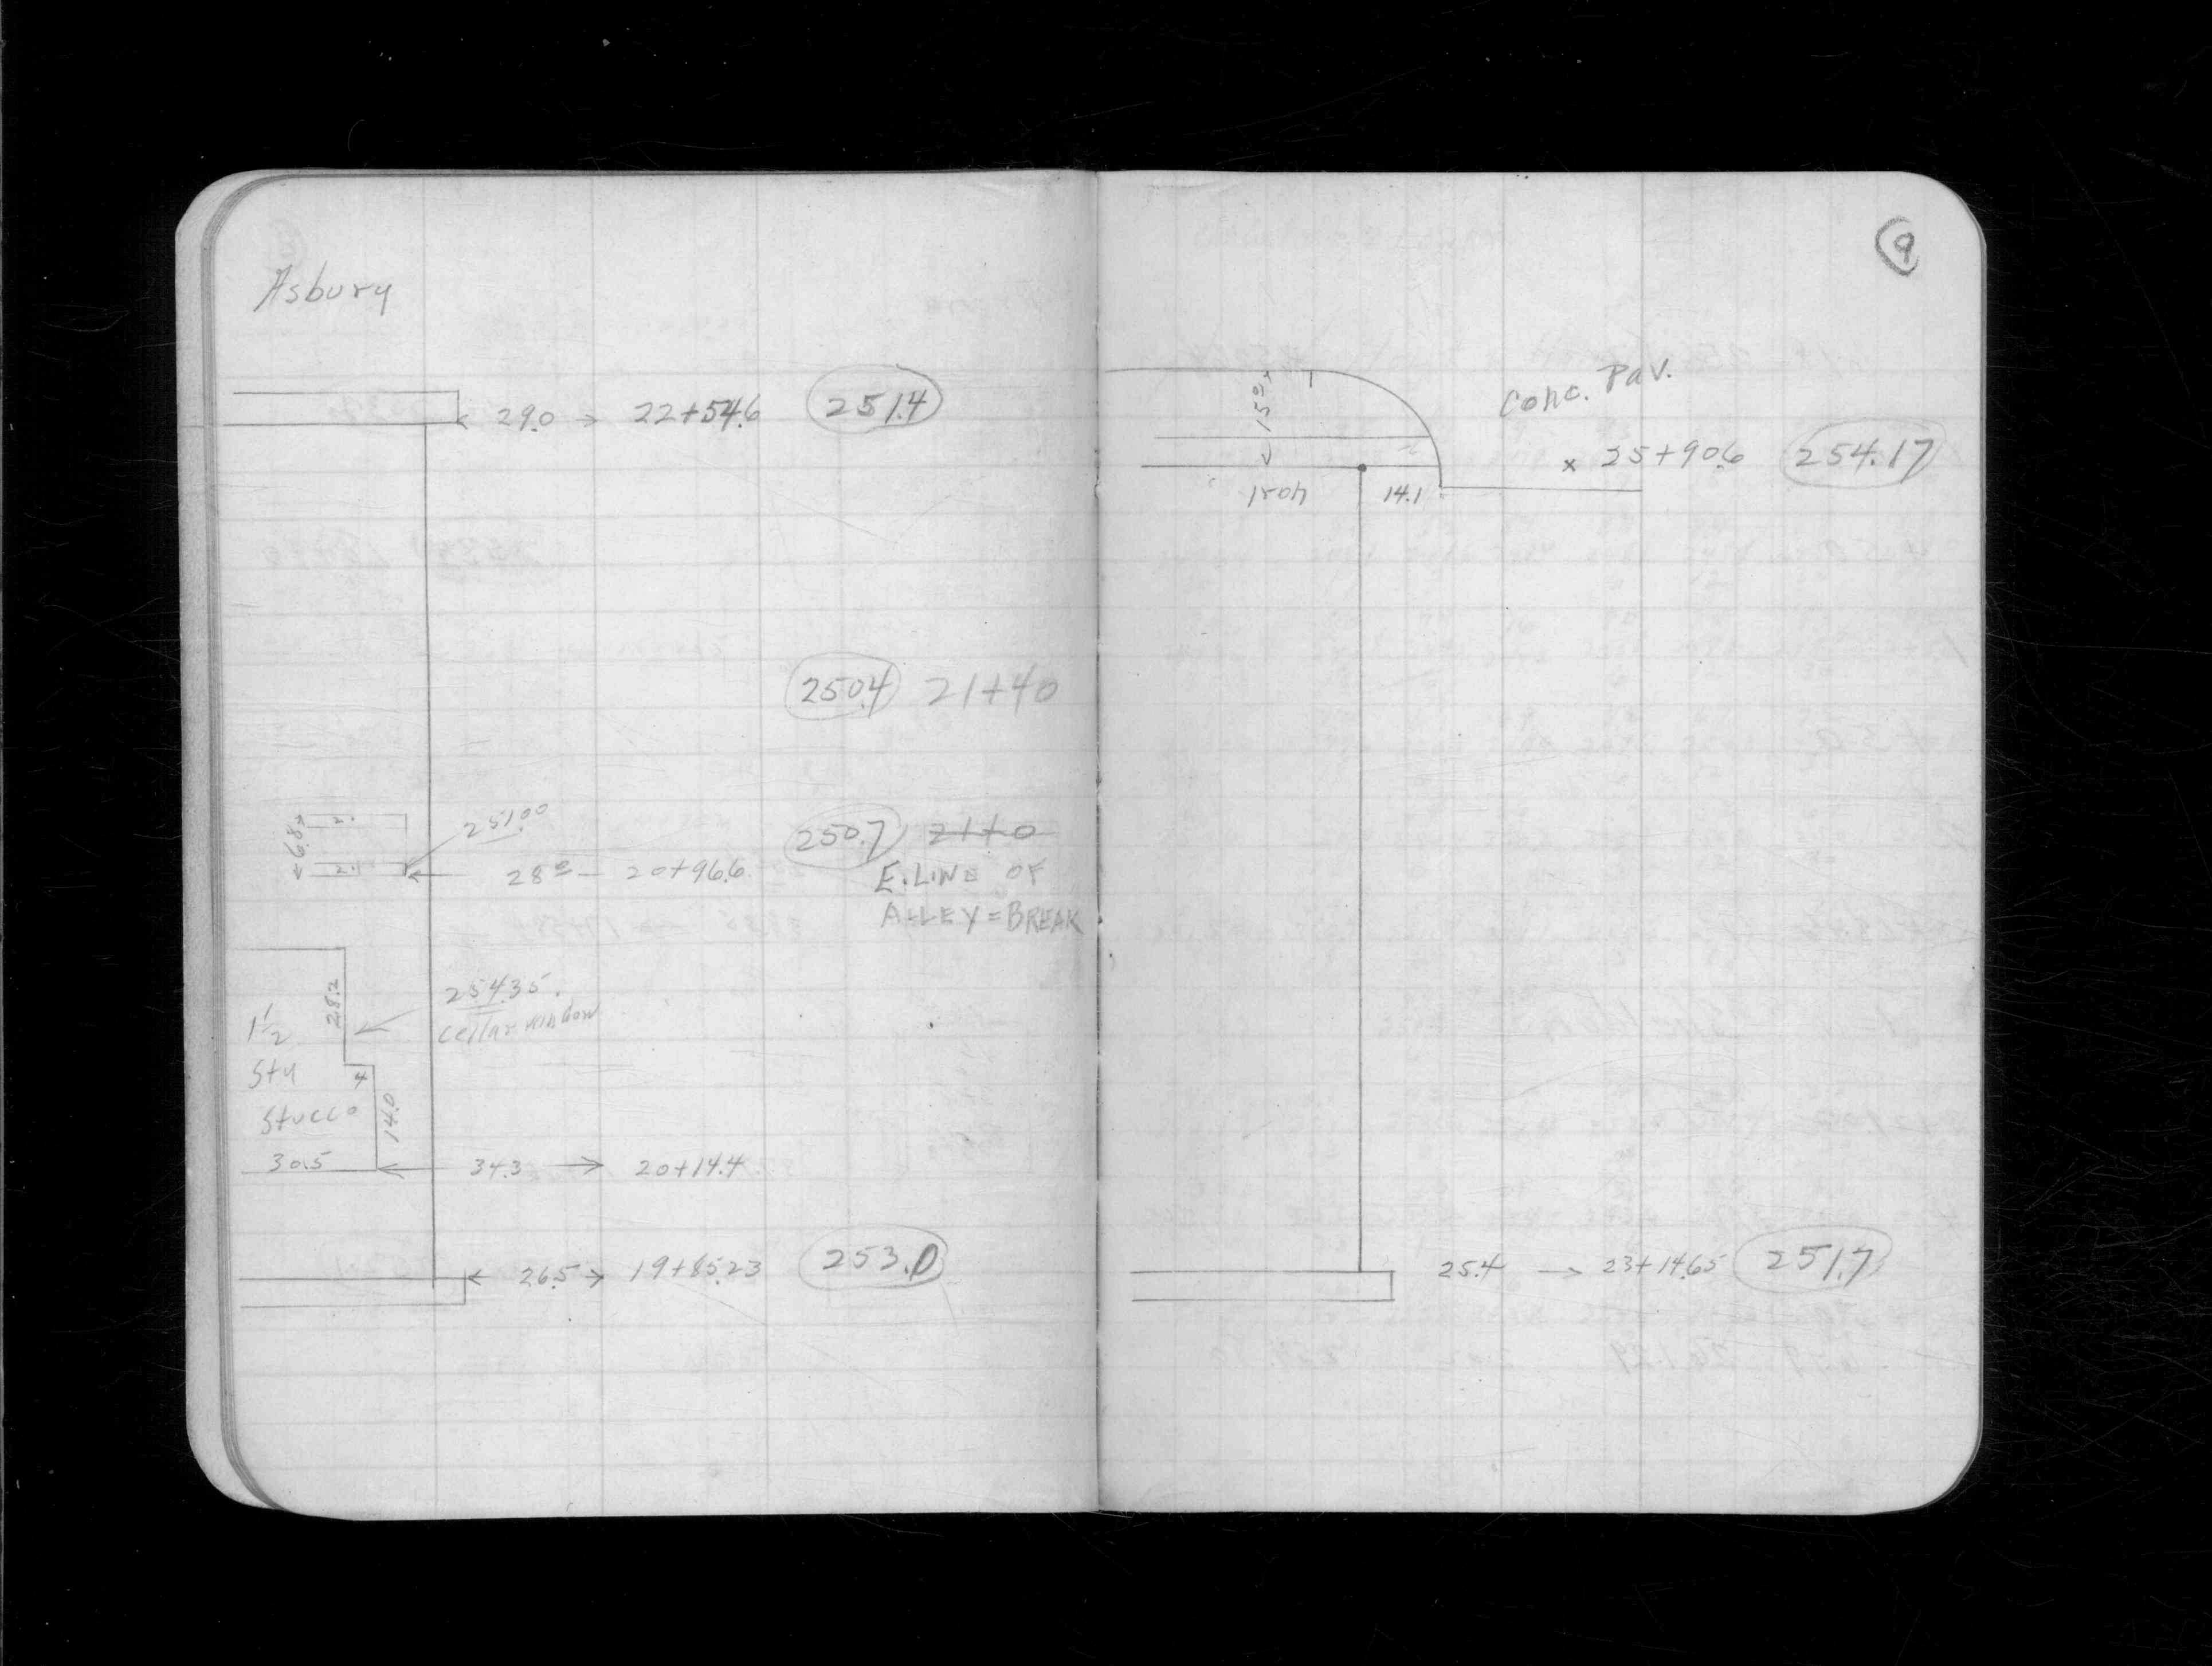 Asbury
29.0 22+54.6 251.4
250.4 21+40
6.8 2. 251.00 250.7 21+0
2.1 28.0 20+96.6 E. LINE OF
ALLEY = BREAK
28.2 254.35
1 1/2 cellar window
Sty 4
Stucco 14.0
30.5 34.3 20+14.4
26.5 19+85.23 253.0
9
Conc. Pav.
15.0 25+90.6 254.17
Iron 14.1
25.4 23+14.65 251.7